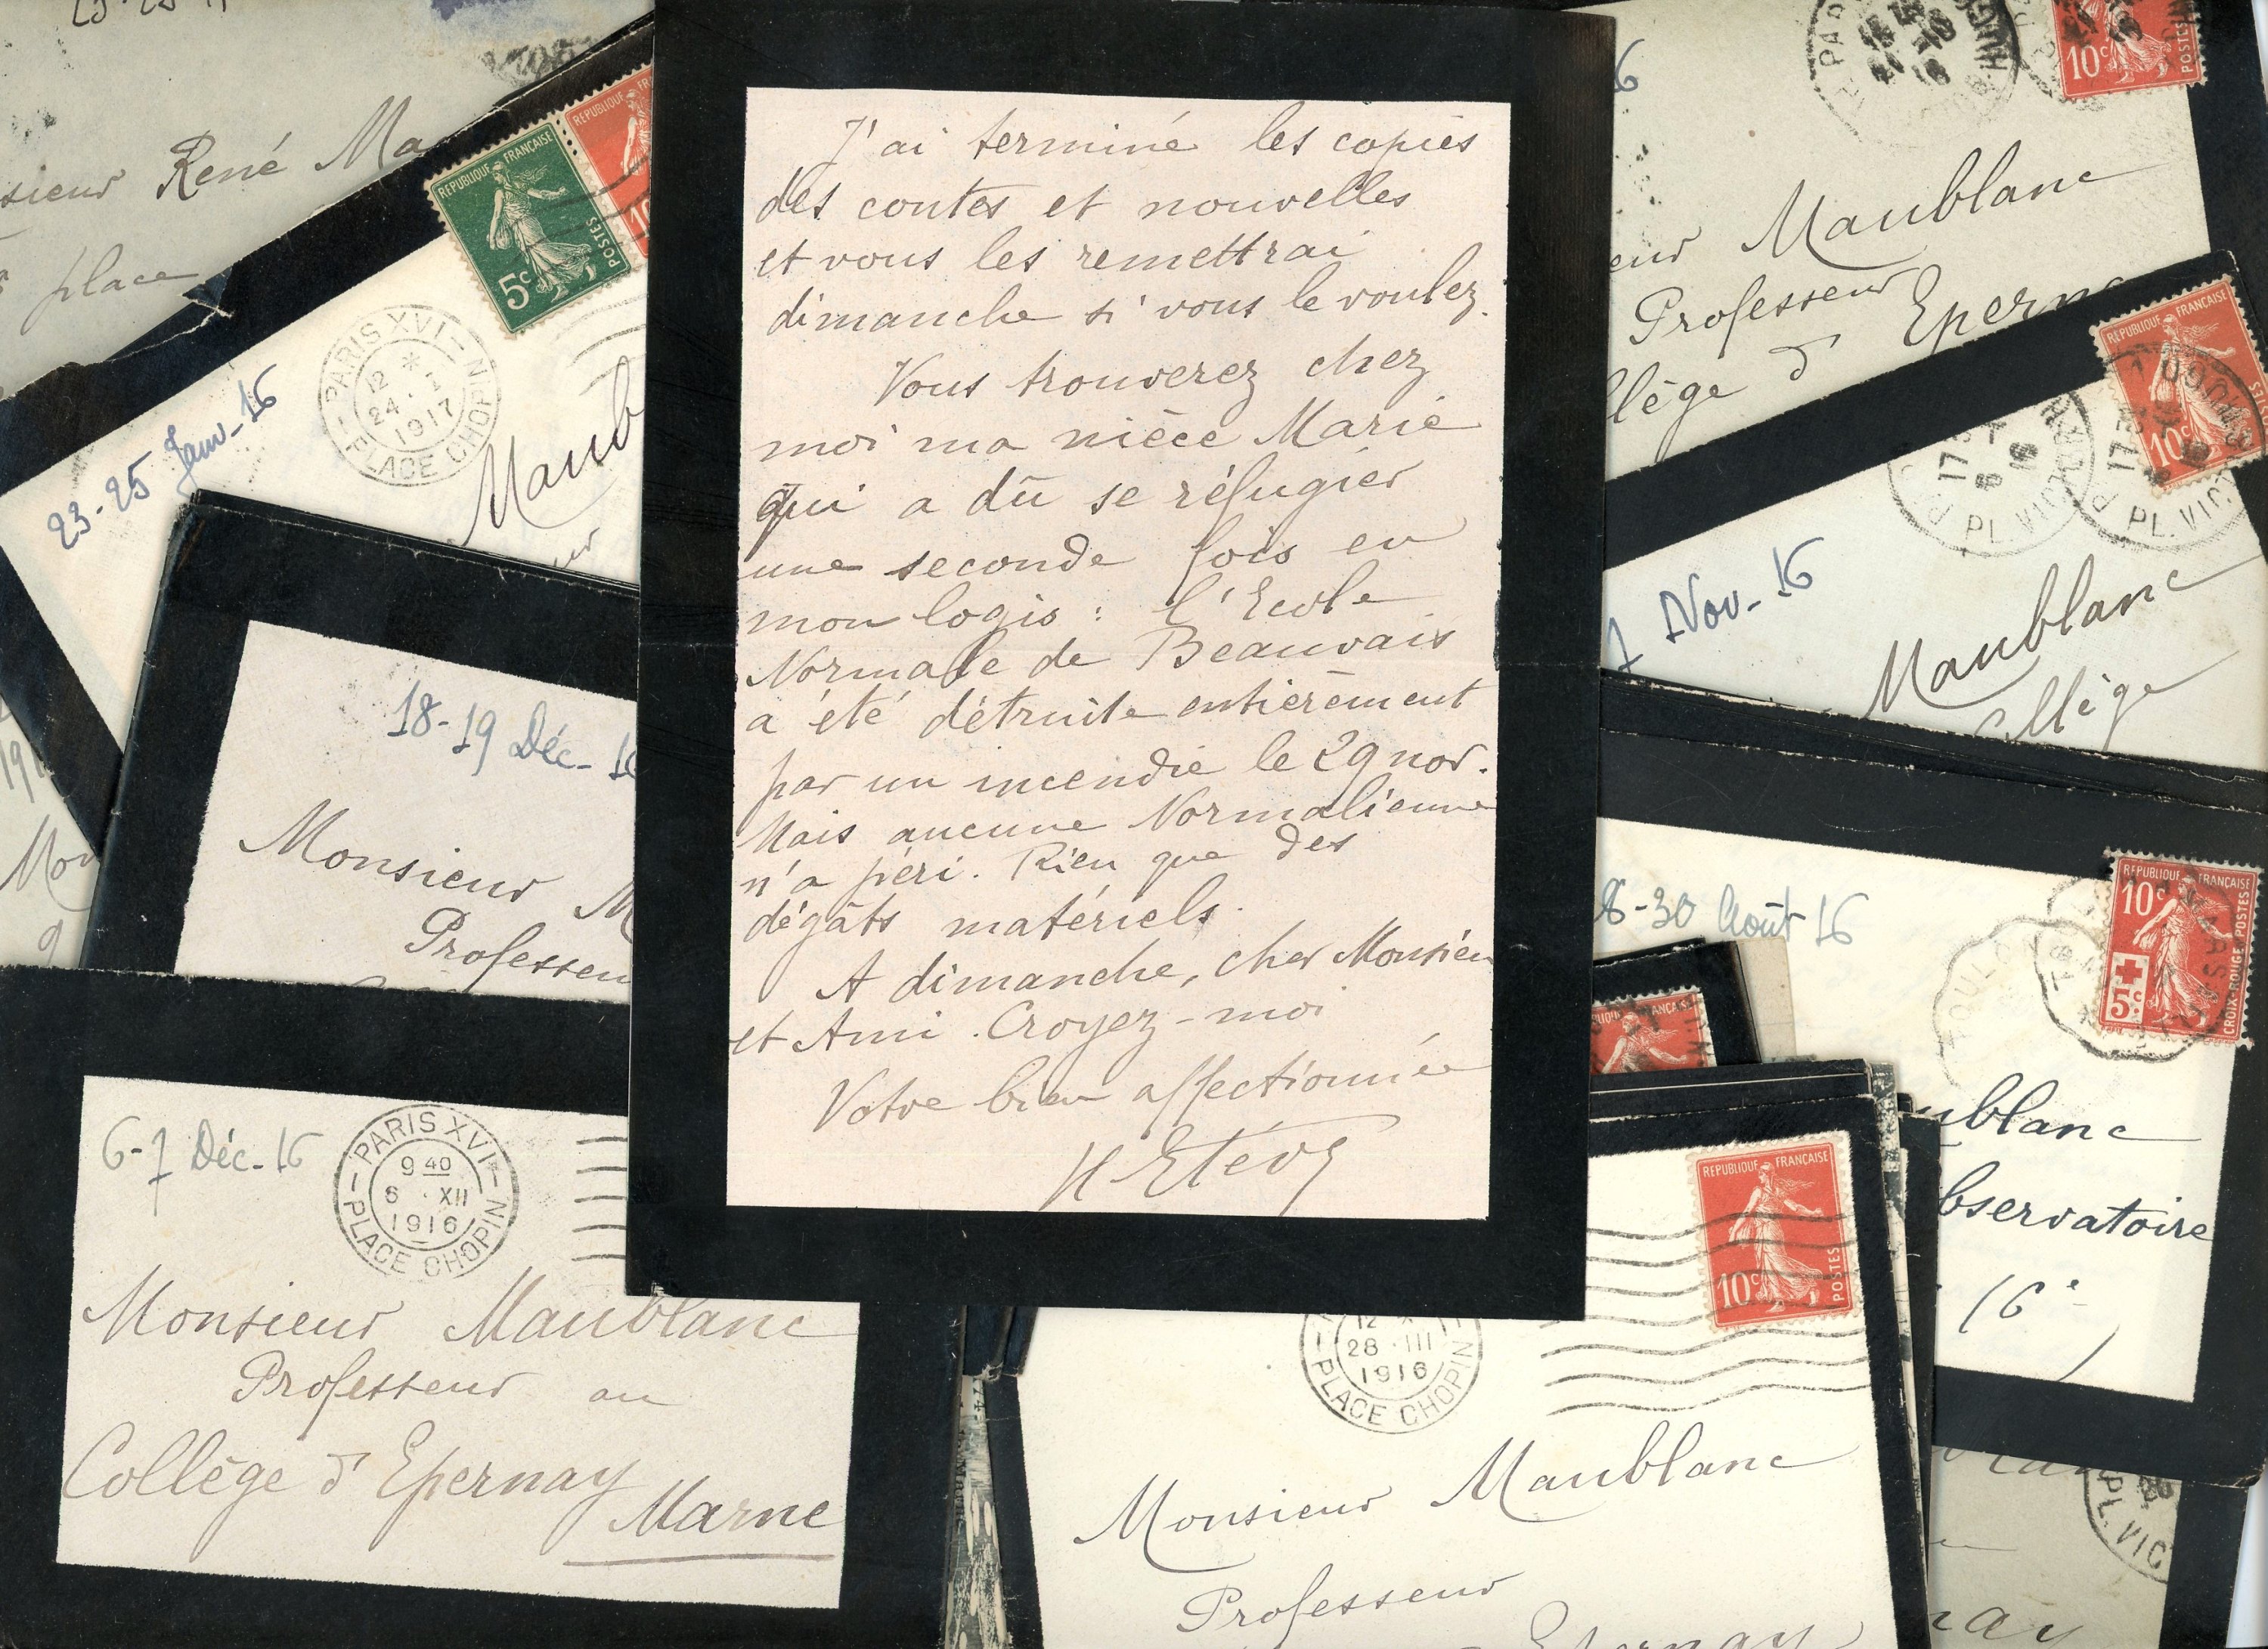 J'ai terminé les copies
des contes et nouvelles
et vous les remettrai
dimanche si vous le voulez.
Vous trouverez chez
moi ma nièce Marie
qui a dû se réfugier
une seconde fois en
mon logis : l'Ecole
Normale de Beauvais
a été détruite entièrement
par un incendie le 29 nov.
Mais aucune Normalienne
n'a péri. Rien que des
dégâts matériels.
A dimanche, cher Monsieu
et Ami. Croyez-moi
Votre bien affectionnée
sieur René Ma
place
REPUBLIQUE FRANÇAISE
5c POSTES
REPUBLIQUE FR
10
PARIS XVI
12 *
24
1917
PLACE CHOPIN
23-25 Janv-16
Maub
eur
18-19 Déc-16
Monsieur M
Professeu
6-7 Déc-16
PARIS XVI
9 40
6 XII
1916
PLACE CHOPIN
Monsieur Maublanc
Professeur au
Collège d'Epernay
Marne
10c POSTES
eur Maublanc
Professeur
llège d'Eperna
REPUBLIQUE FRANÇAISE
10c
PL. VICTOR
PL. VICT
Nov-16
Maublanc
ollège
8-30 Août 16
REPUBLIQUE FRANÇAISE
10c POSTES
5c CROIX-ROUGE
ublanc
bservatoire
16e
REPUBLIQUE FRANÇAISE
10c POSTES
12
28 III
1916
PLACE CHOPIN
Monsieur Maublanc
Professeur
Epernay
PL. VIC
nay